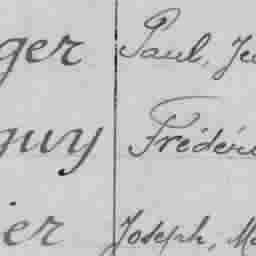 ger Paul, Je
guy Fréderi
ier Joseph, Ma